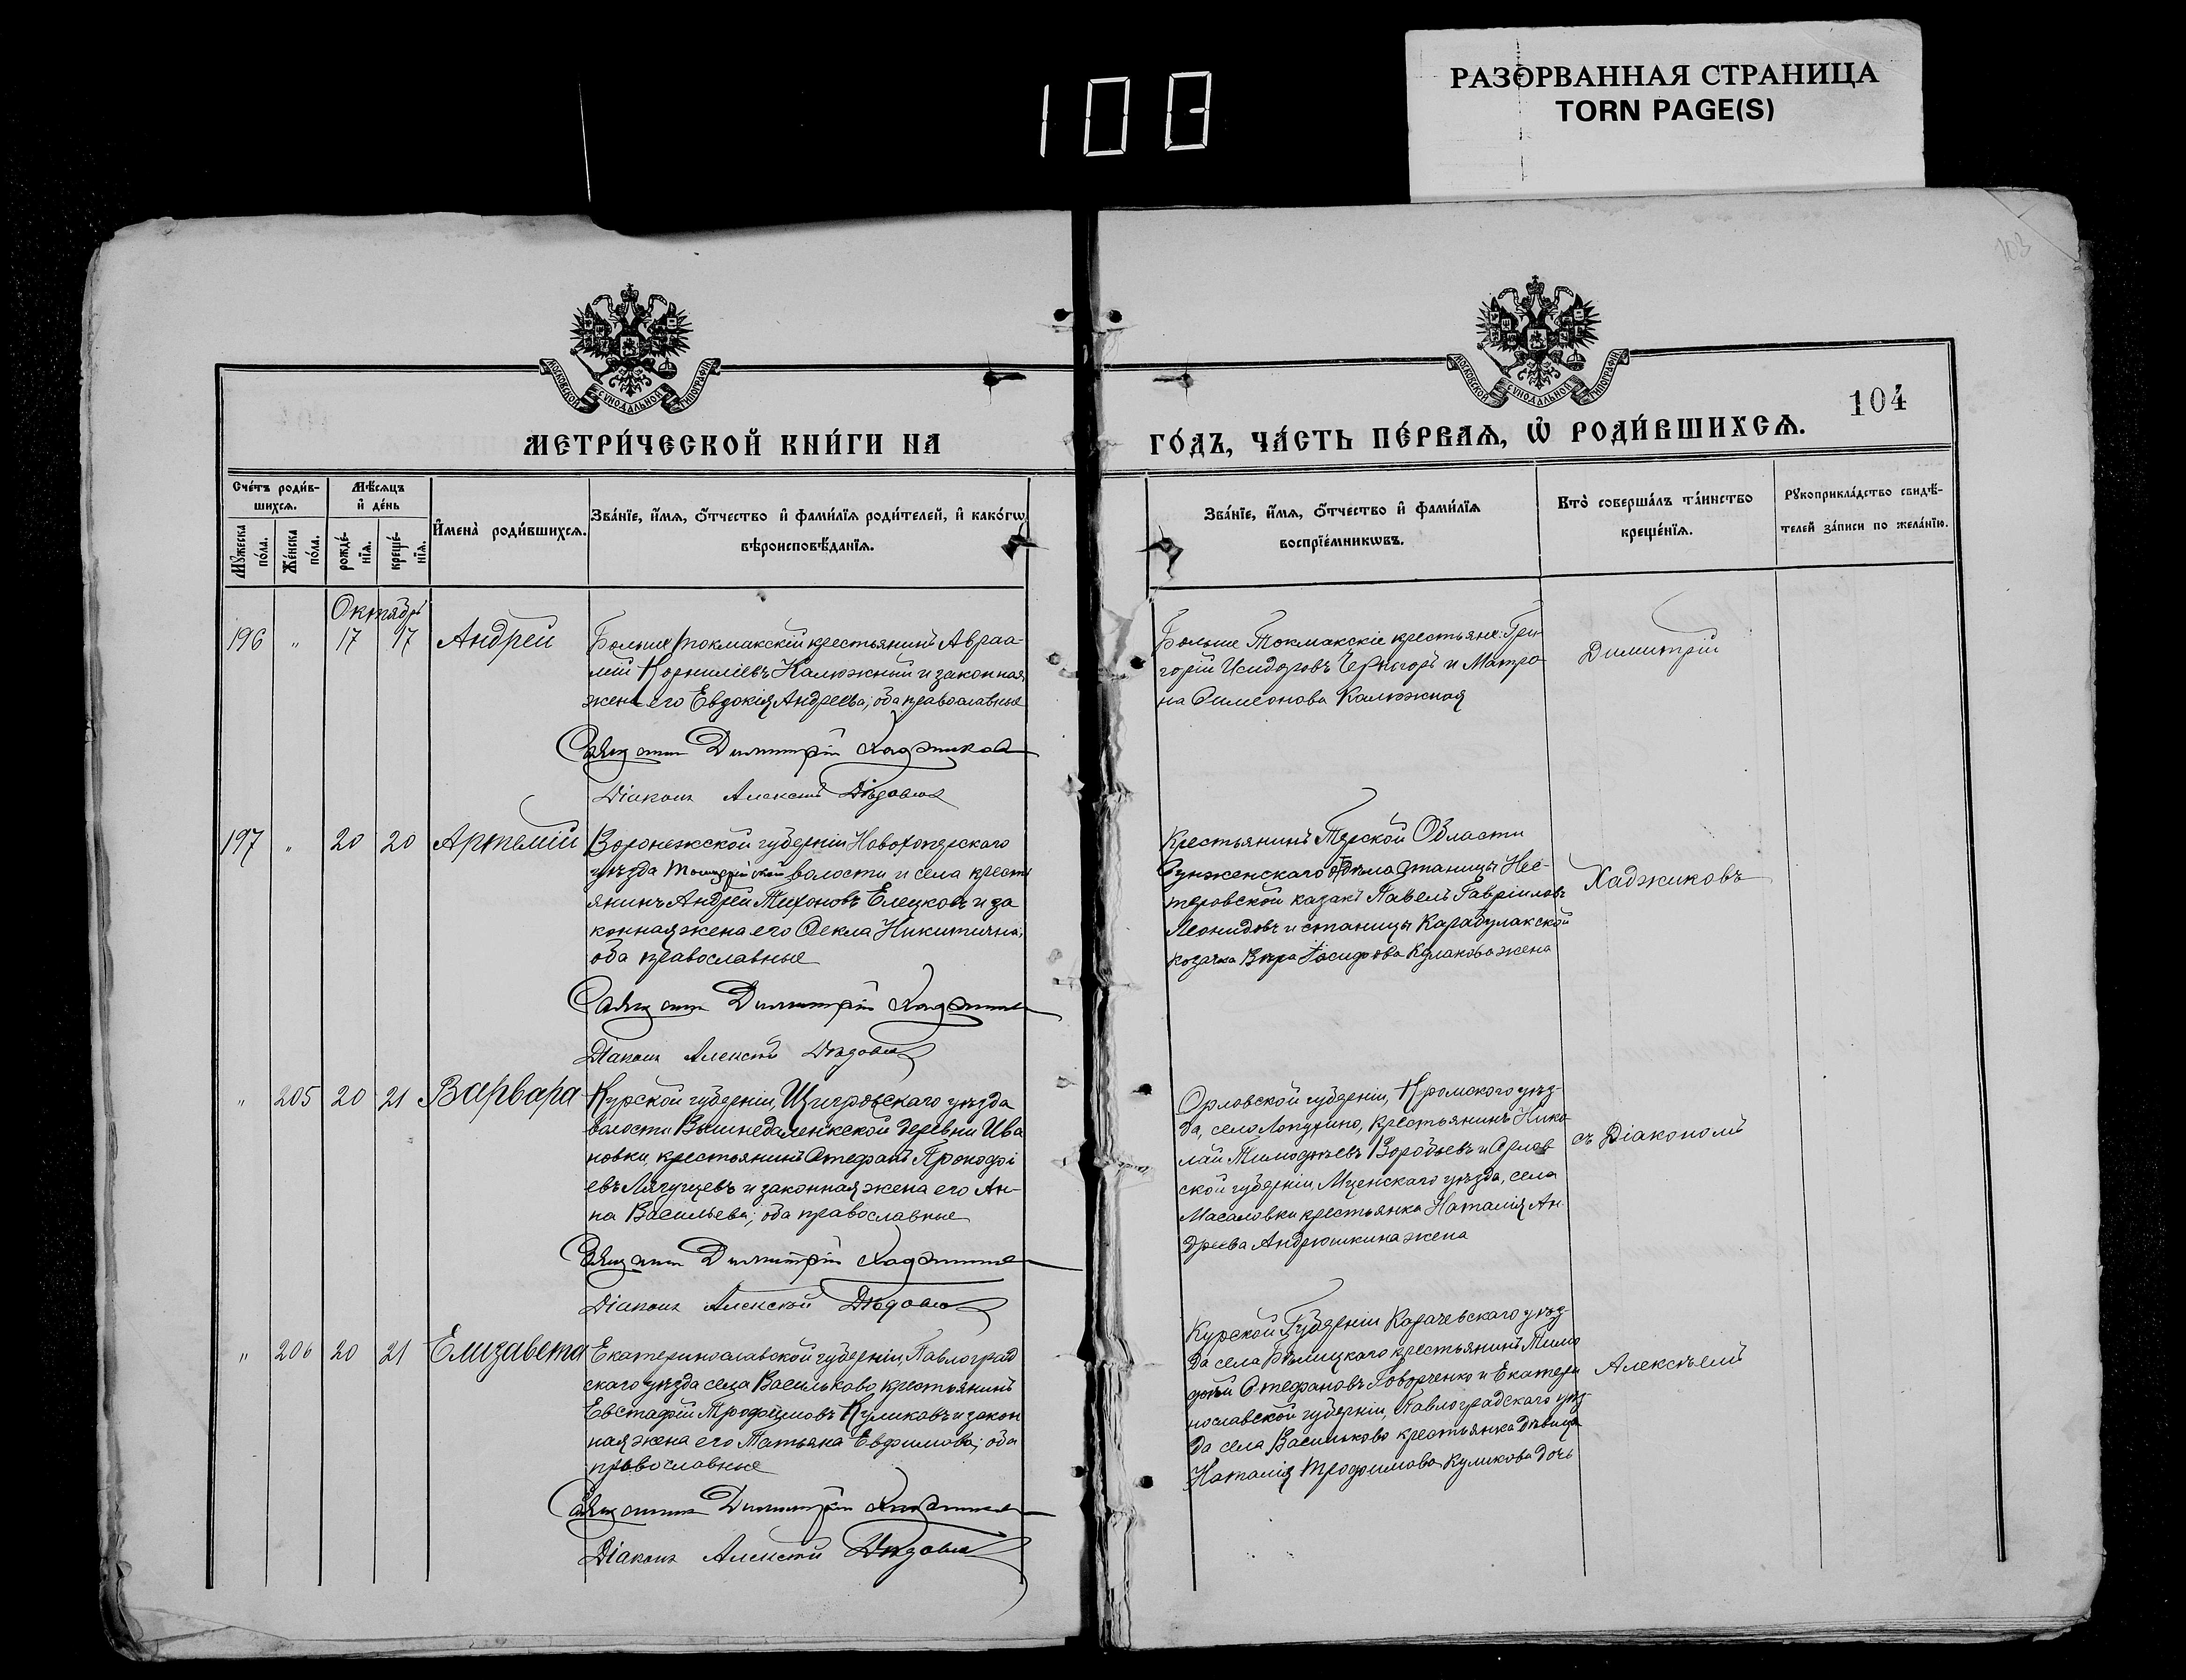 РАЗОРВАННАЯ СТРАНИЦА
TORN PAGE(S)
108
103
104
МОСКОВСКОЙ СѴНОДАЛЬНОЙ ТИПОГРАФІИ
МОСКОВСКОЙ СѴНОДАЛЬНОЙ ТИПОГРАФІИ
МЕТРИ́ЧЕСКОЙ КНИ́ГИ НА
ГО́ДЪ, ЧА́СТЬ ПЕ́РВАѦ, Ѽ РОДИ́ВШИХСѦ.
Сче́тъ роди́в-
шихсѧ.
Мꙋжеска по́ла.
Же́нска по́ла.
Мѣ́сѧцъ
и҆ де́нь
рожде́-нїѧ.
креще́-нїѧ.
И҆мена̀ роди́вшихсѧ.
Зва́нїе, и҆́мѧ, ѻ҆́тчество и҆ фами́лїѧ роди́телей, и҆ како́гѡ
вѣроисповѣ́данїѧ.
Зва́нїе, и҆́мѧ, ѻ҆́тчество и҆ фами́лїѧ
воспрїе́мникѡвъ.
Кто̀ соверша́лъ та́инство
креще́нїѧ.
Рꙋкоприкла́дство свидѣ́-
телей за́писи по жела́нїю.
Октябрь
196 " 17 17 Андрей
Больше Токмакскій крестьянинъ Авраа-
мій Корниліевъ Калюжный и законная
жена его Евдокія Андреева; оба православные
Священникъ Димитрій Хаджиковъ
Діаконъ Алексій Дѣдовъ
Больше Токмакскіе крестьяне: Гри-
горій Исидоровъ и Матро-
на Симеонова Калюжная
Димитрій
197 " 20 20 Артемій
Воронежской губерніи Новохоперскаго
уѣзда волости и села кресть
янинъ Андрей Тихоновъ Елецковъ и за
конная жена его Ѳекла Никитична;
оба православные
Священникъ Димитрій Хаджиковъ
Діаконъ Алексій Дѣдовъ
Крестьянинъ Терской Области
Сунженскаго отдѣла станицы Нес-
теровской казакъ Павелъ Гавріиловъ
Леонидовъ и станицы Карабулакской
козачка Вѣра Іосифова жена
Хаджиковъ
" 205 20 21 Варвара
Курской губерніи, Щигровскаго уѣзда
волости деревни Ива
новки крестьянинъ Стефанъ Прокофі
евъ и законная жена его Ан-
на Васильева; оба православные
Священникъ Димитрій Хаджиковъ
Діаконъ Алексій Дѣдовъ
Орловской губерніи, Кромского уѣз-
да, село Лопухино, крестьянинъ Нико-
лай Тимофѣевъ Воробьевъ и Орлов
ской губерніи, Мценскаго уѣзда, села
Масаловки крестьянка Наталія Ан
дреева Андрюшкина жена
съ Діакономъ
" 206 20 21 Елизавета
Екатеринославской губерніи, Павлоград
скаго уѣзда села Васильково крестьянинъ
Евстафій Трофимовъ Куликовъ и закон
ная жена его Татьяна Евфимова; оба
православные
Священникъ Димитрій Хаджиковъ
Діаконъ Алексій Дѣдовъ
Курской Губерніи Карачевскаго уѣз-
да села крестьянинъ Тимо
фѣй Стефановъ Говорченко и Екатери
нославской губерніи, Павлоградскаго уѣз-
да села Васильково крестьянка дѣвица
Наталія Трофимова Куликова дочь
Алексѣемъ